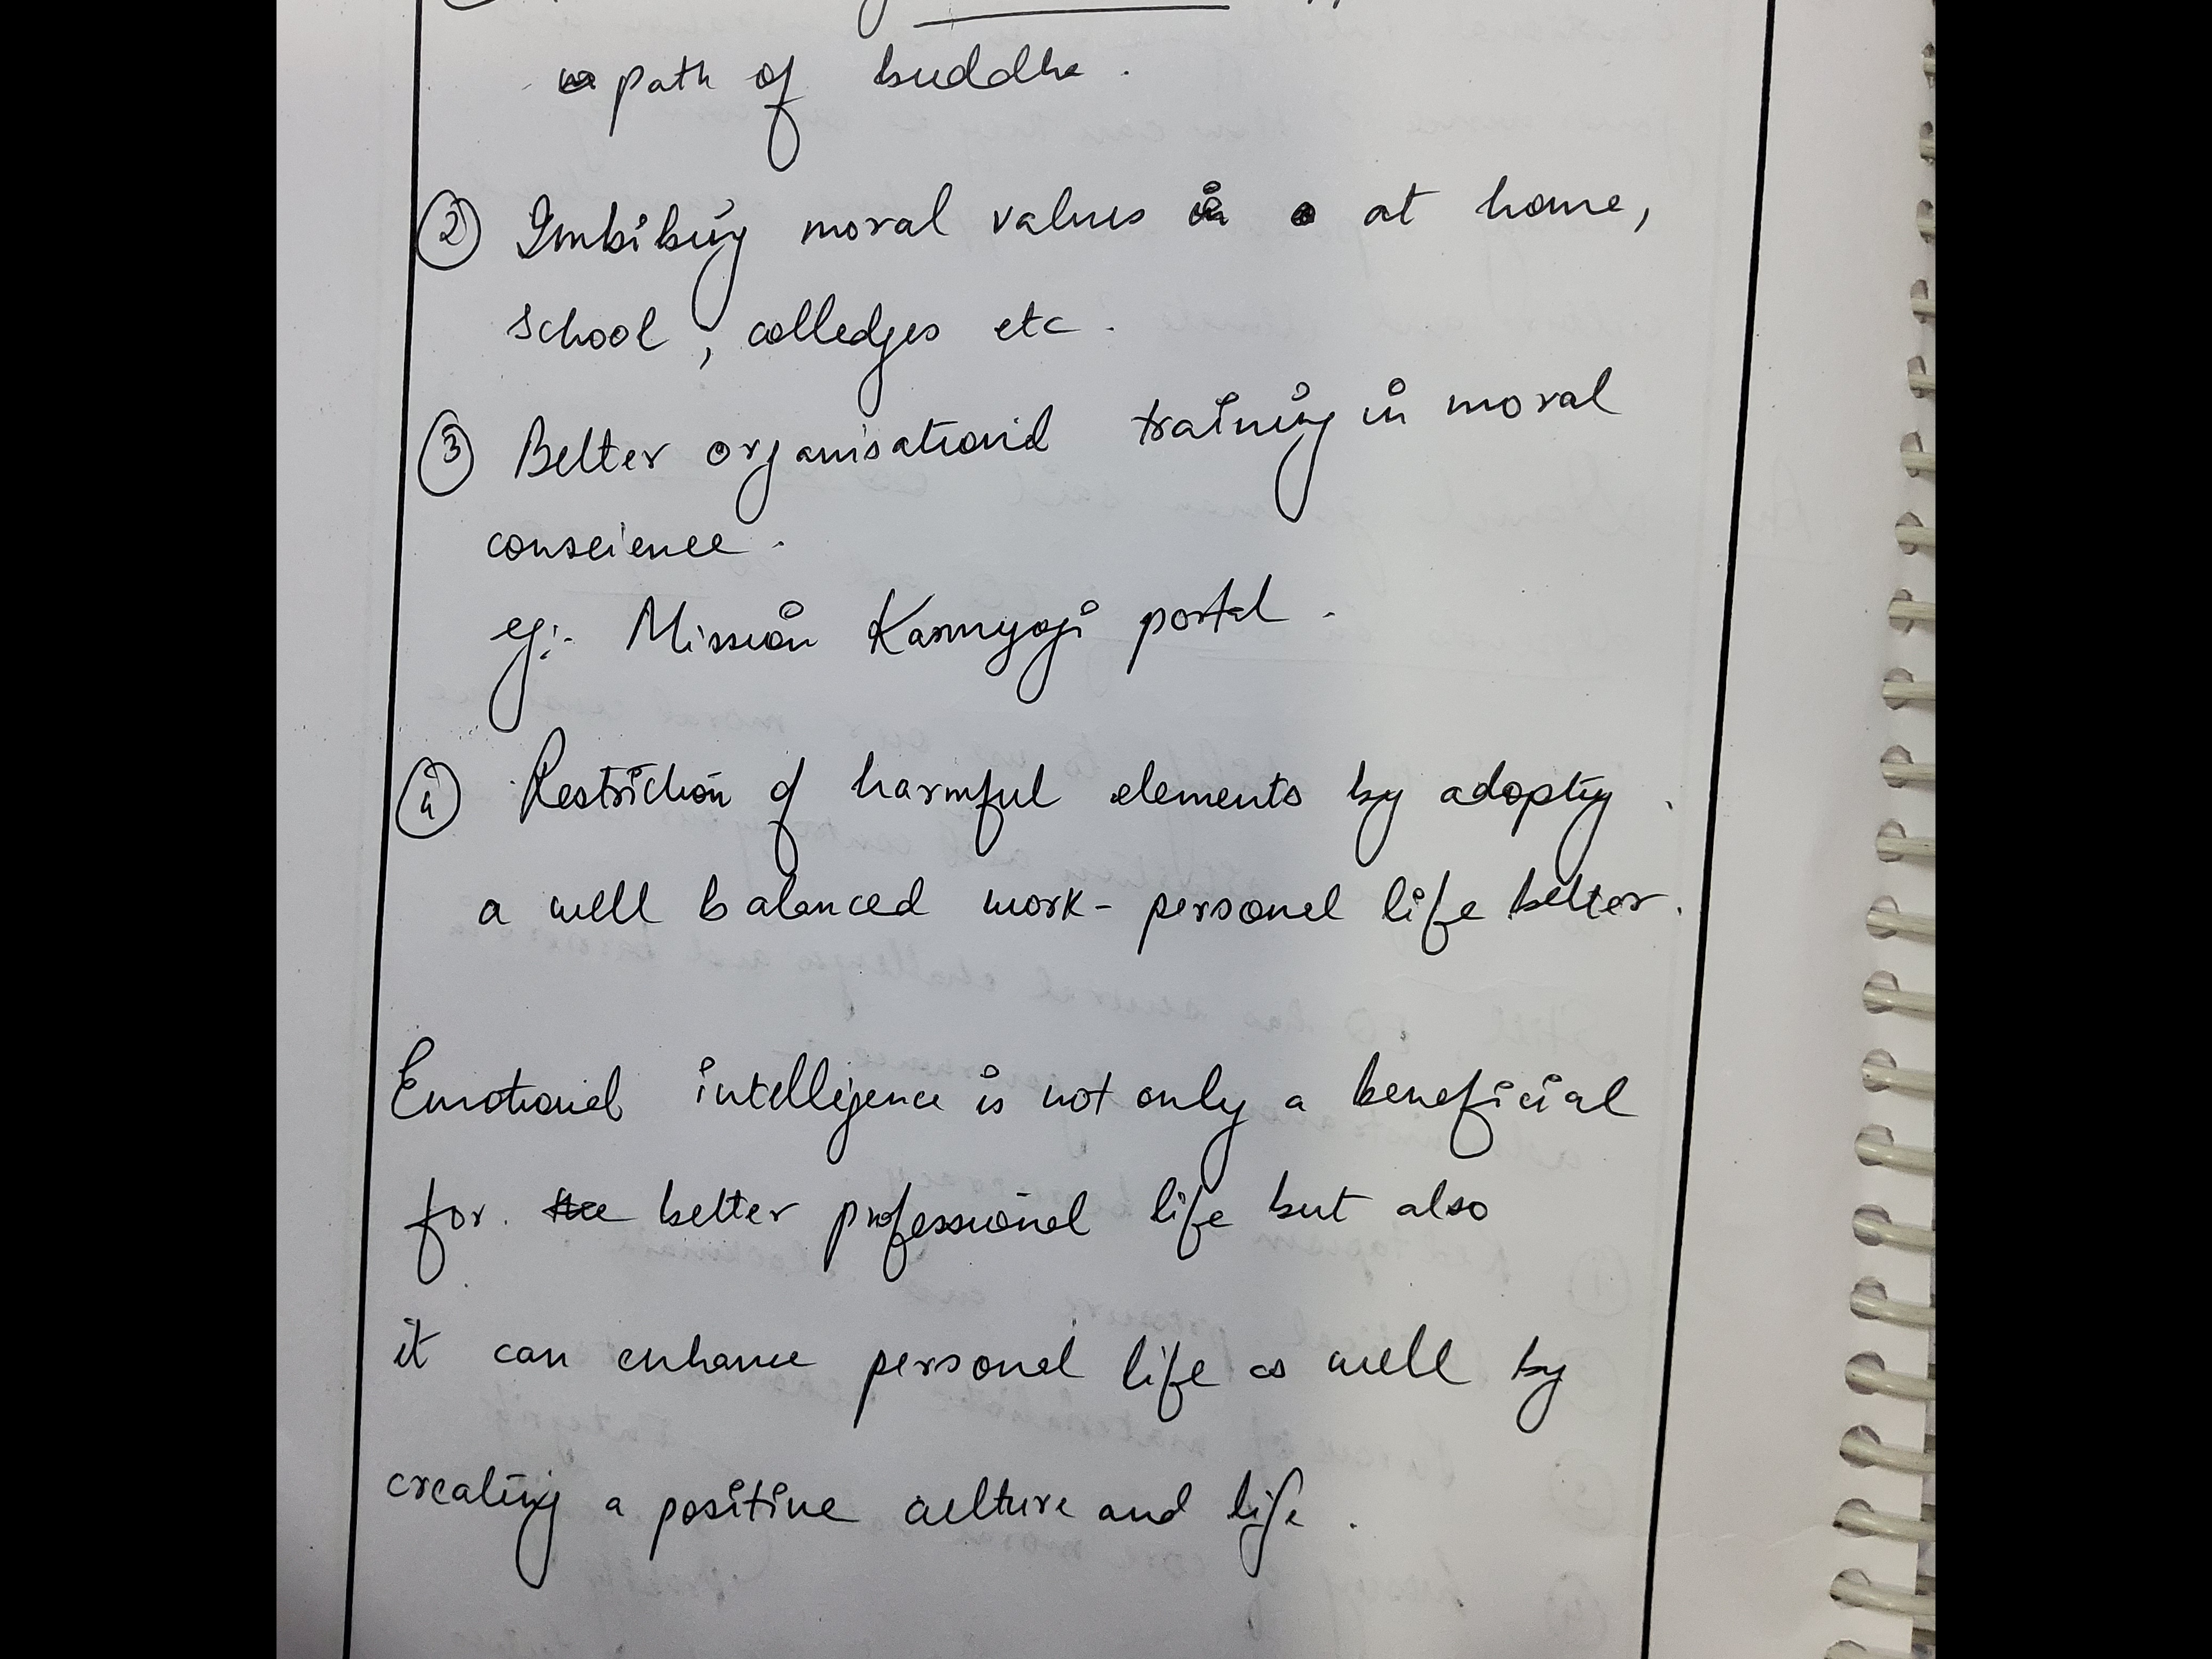 path of buddha.
② Imbibing moral values at home,
school, colledges etc.
③ Better organisational training in moral
conscience.
eg:- Mission Karmyogi portal.
④ Restriction of harmful elements by adopting
a well balanced work-personel life better.
Emotional intelligence is not only a beneficial
for better professional life but also
it can enhance personal life as well by
creating a positive culture and life.